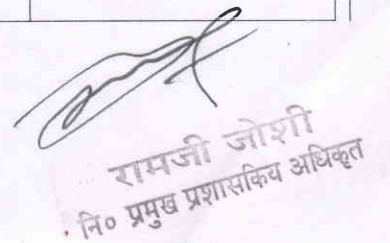 रामजी जोशी
नि० प्रमुख प्रशासकिय अधिकृत